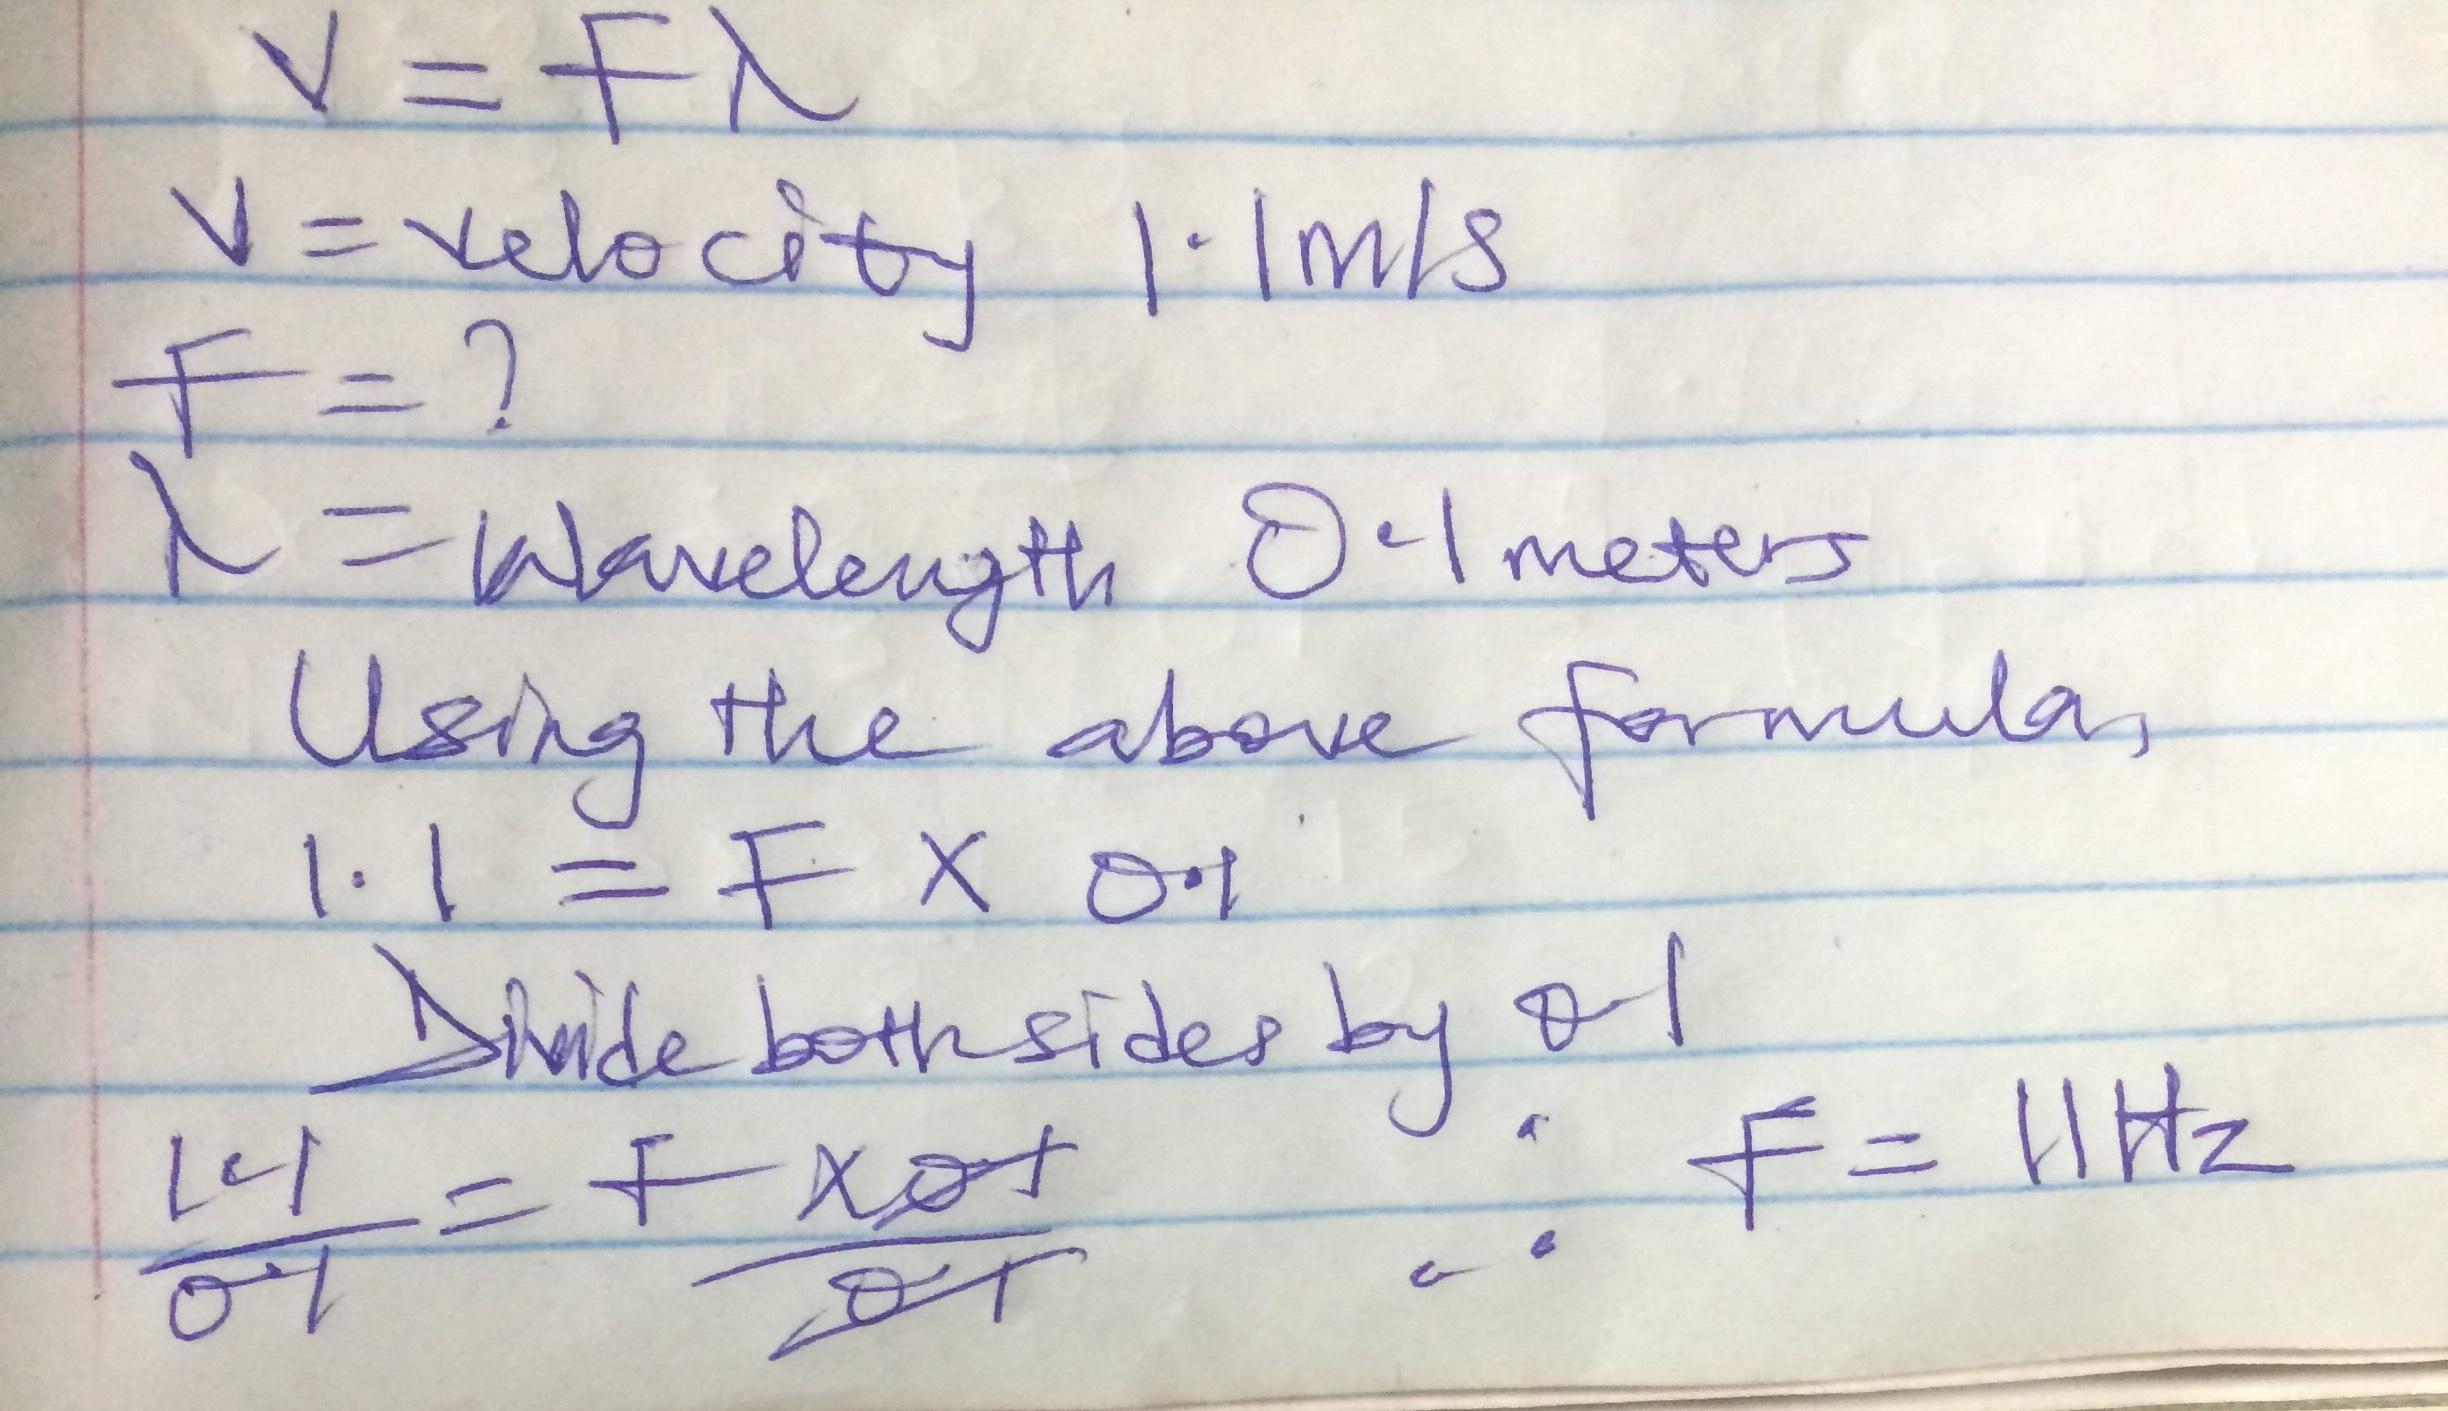 V = Fλ
V = velocity 1.1m/s
F = ?
λ = Wavelength 0.1 meters
Using the above formula,
1.1 = F x 0.1
Divide both sides by 0.1
1.1/0.1 = F x 0.1/0.1 ∴ F = 11Hz